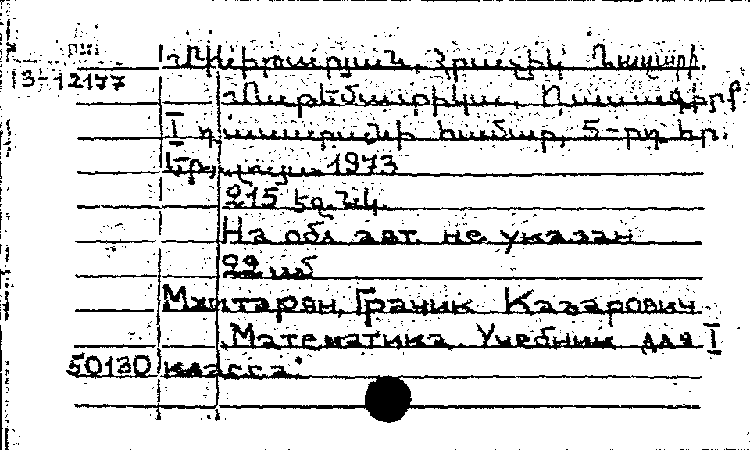 рці
Յ-12177
Մխիթարյան, Հրաչիկ Ղազարի.
Մաթեմատիկա. Դասագիրք
I դասարանի համար, 5-րդ հր.
Երևան 1973
215 էջ. նկ.
На обл авт. не указан
Мхитарян, Грачик Казарович
Математика. Учебник для I
50130 класса.